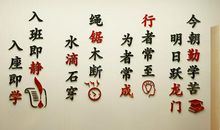 今朝勤学苦
明日跃龙门
行者常至
为者常成
绳锯木断
水滴石穿
入班即静
入座即学